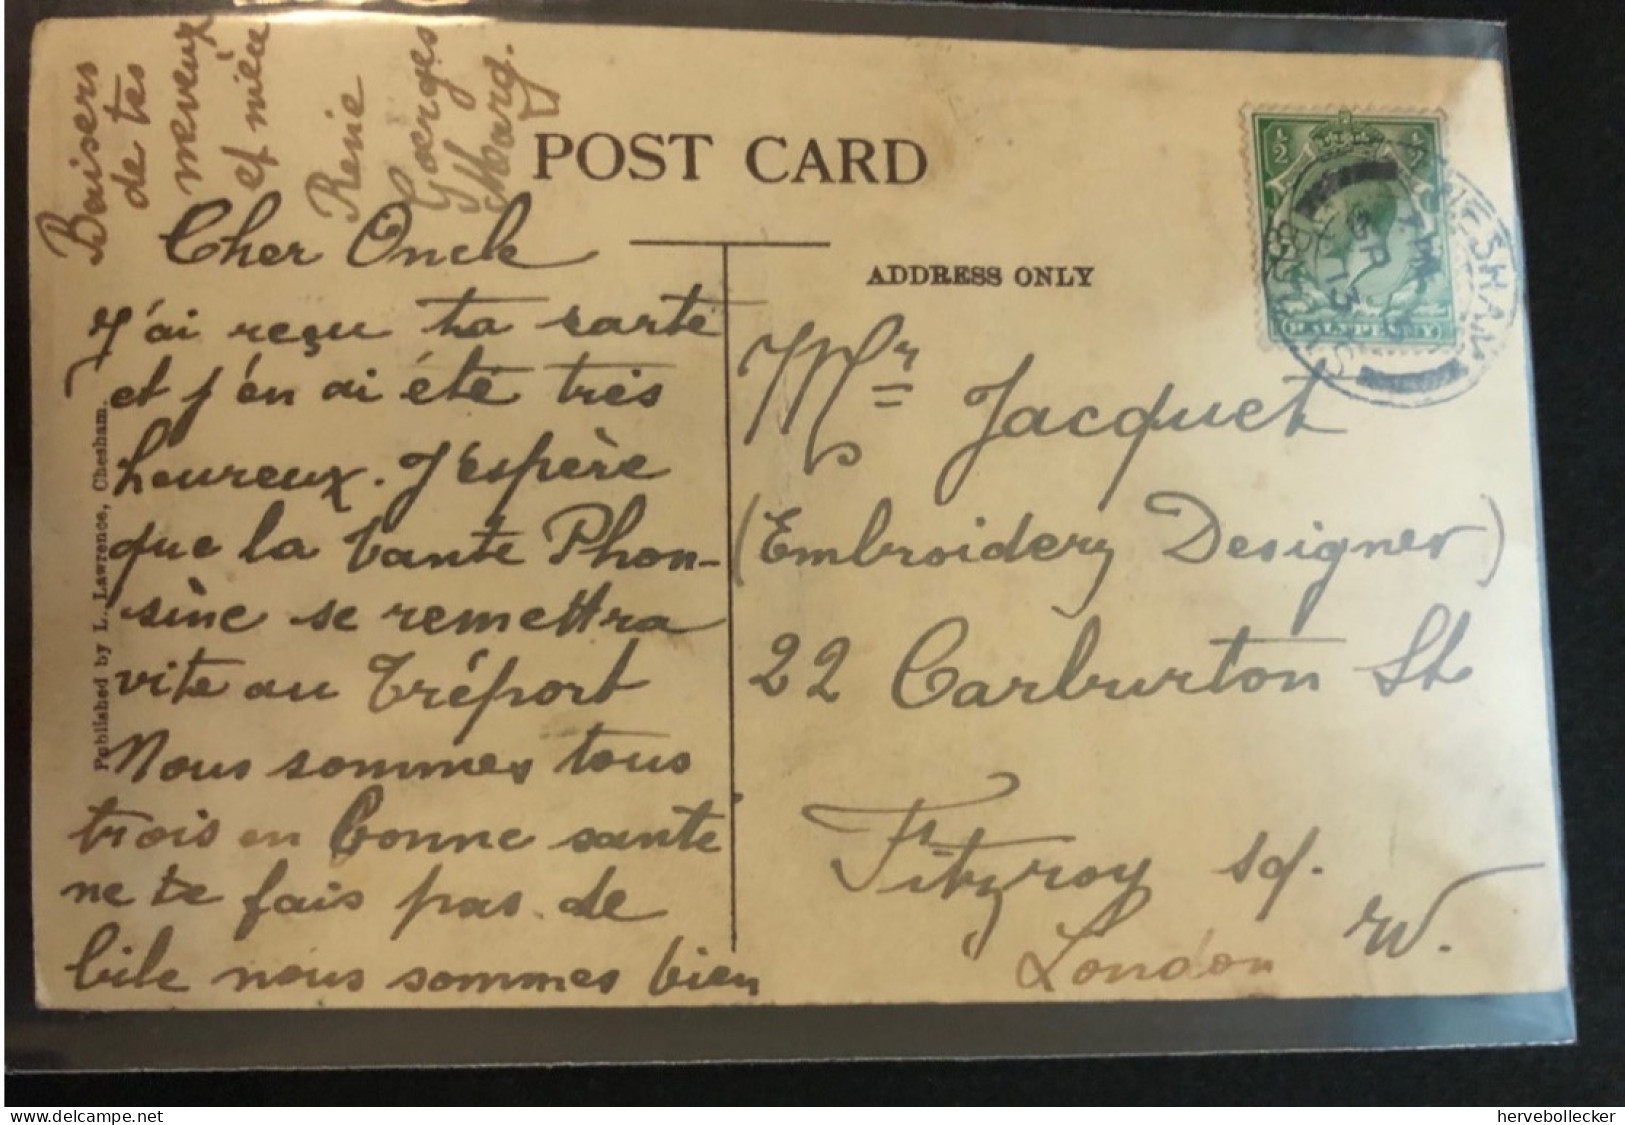 Baisers
de tes
neveux
et nièce
Renie
Goerges
Marg.
POST CARD
Cher Oncle
J'ai reçu ta carte
et j'en ai été très
heureux. J'espère
que la tante Phon-
sine se remettra
vite au Tréport
Nous sommes tous
trois en bonne santé
ne te fais pas de
bile nous sommes bien
Published by L. Lawrence, Chesham.
ADDRESS ONLY
Mr Jacquet
(Embroidery Designer)
22 Carburton St
Fitzroy sq.
London W.
HALFPENNY
hervebollecker